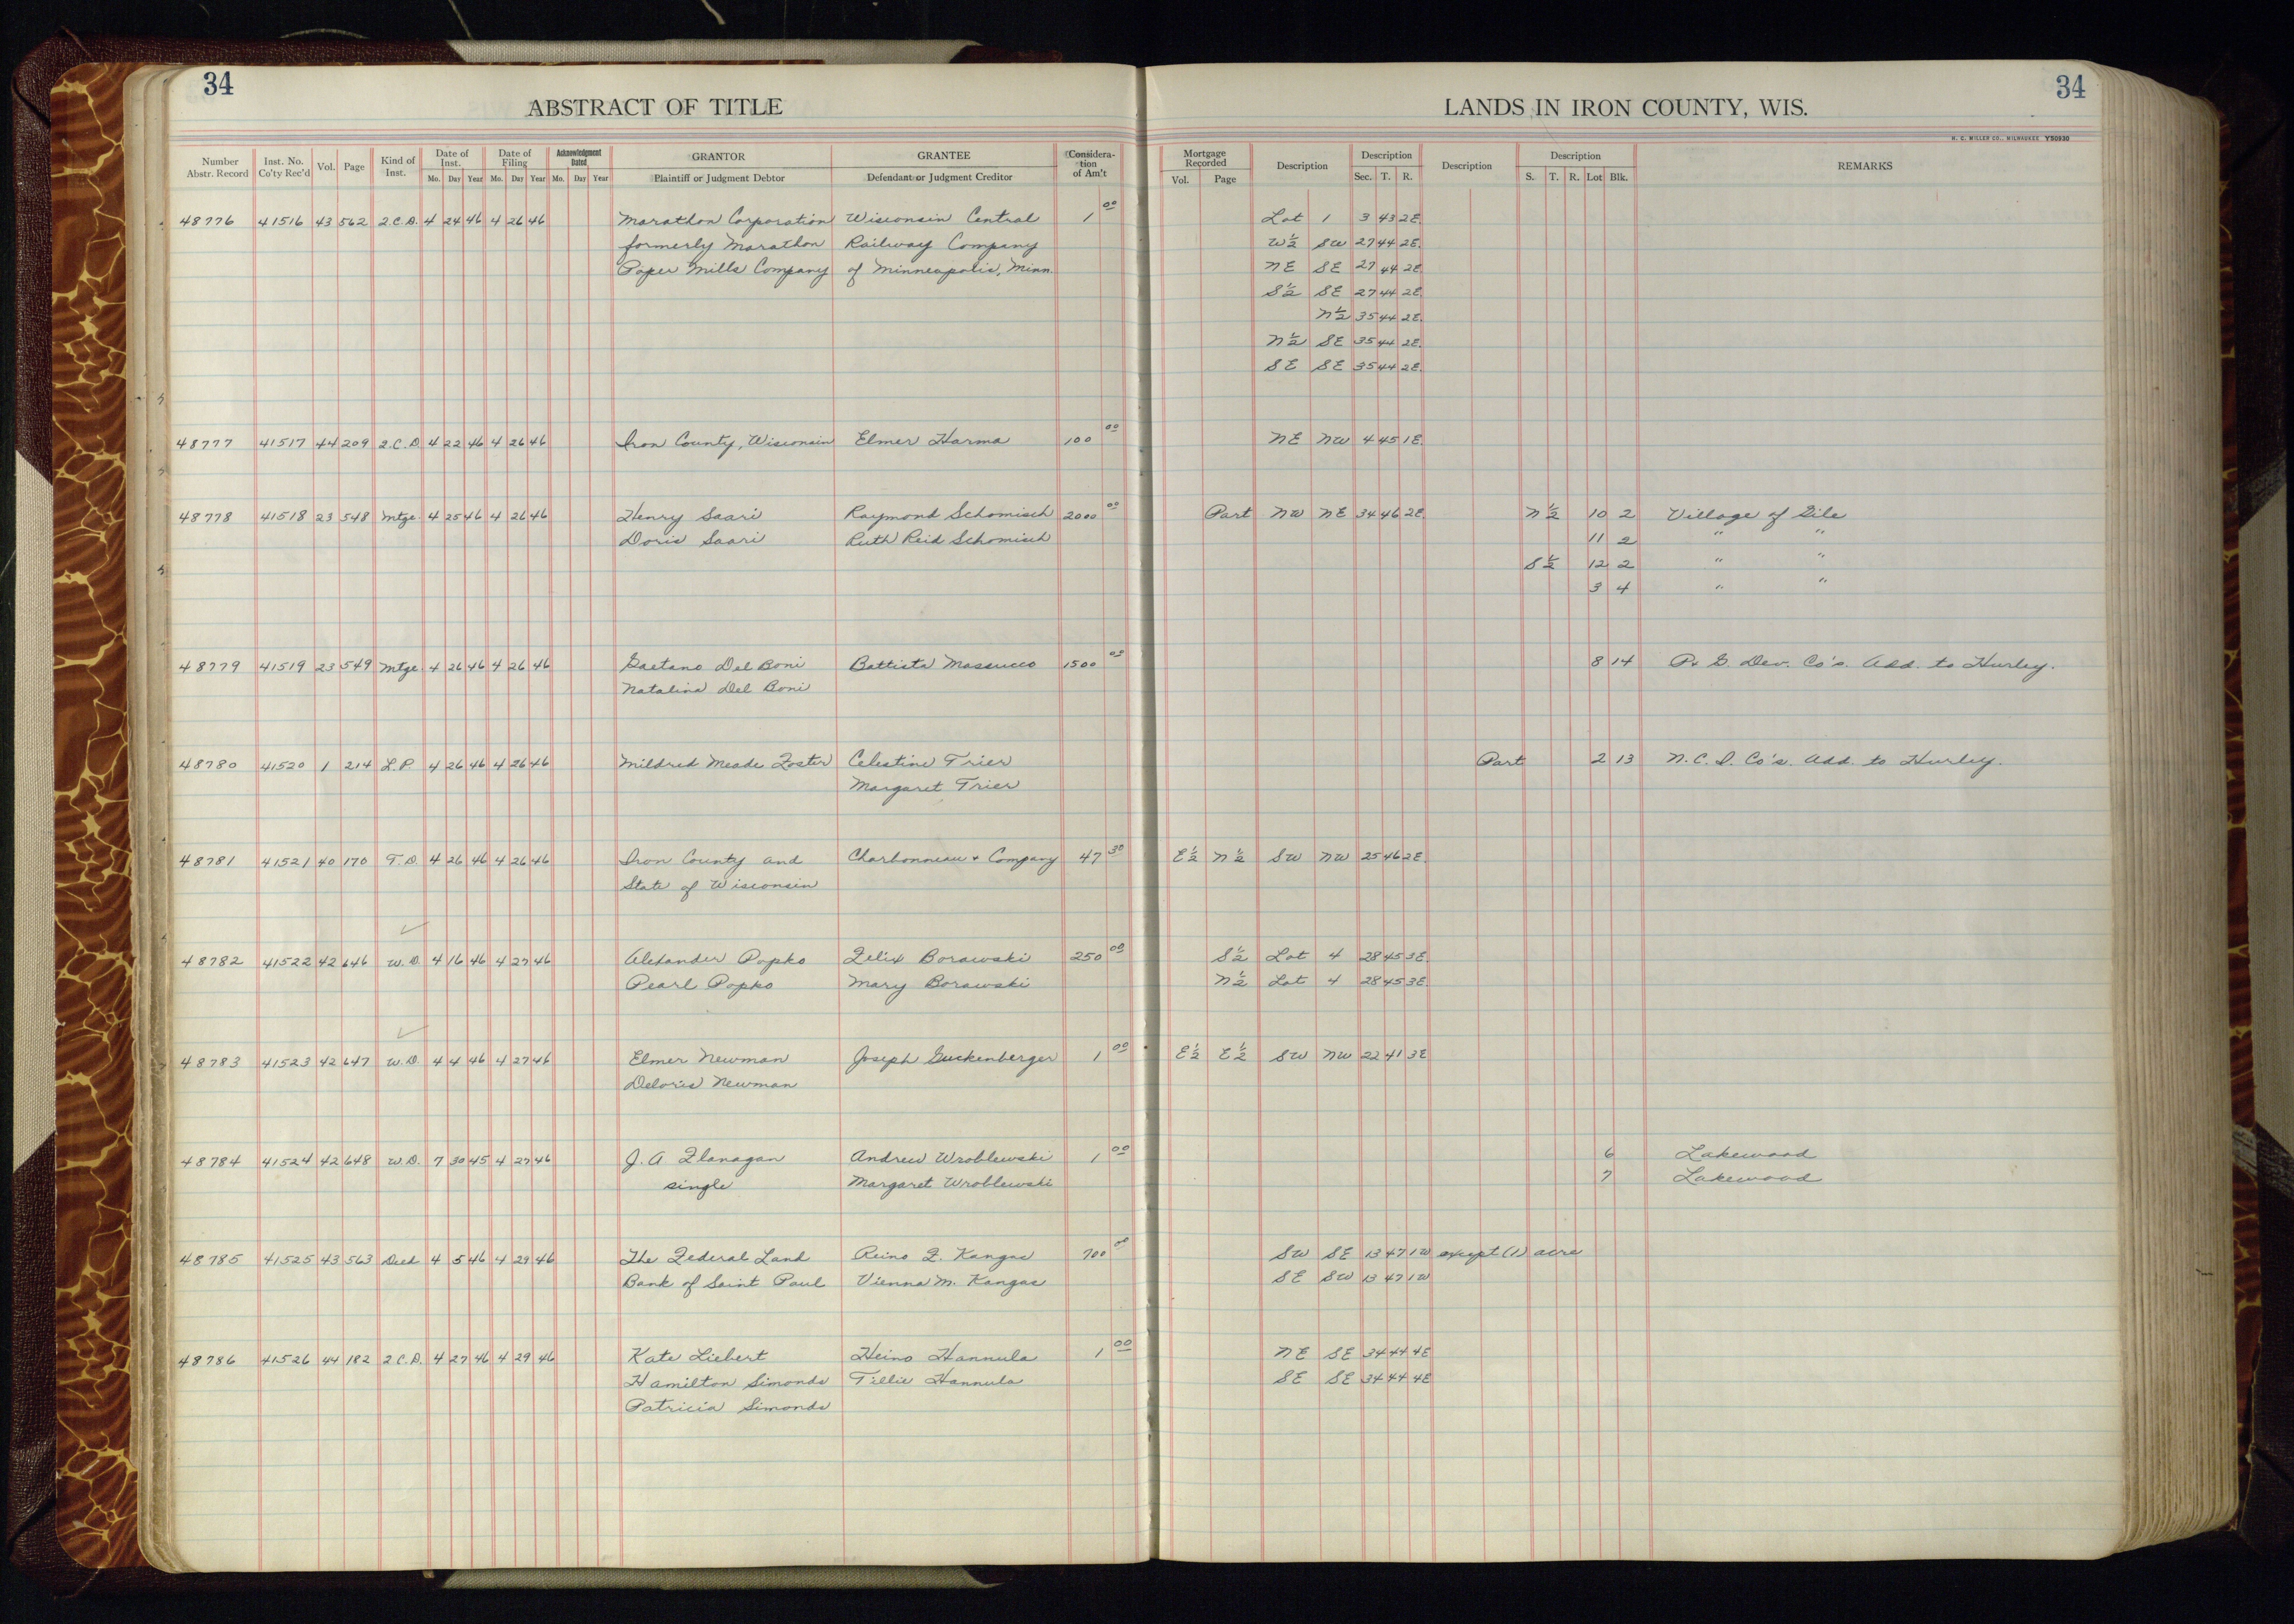 34
ABSTRACT OF TITLE
LANDS IN IRON COUNTY, WIS.
34
H. C. MILLER CO., MILWAUKEE Y50930
Number Abstr. Record | Inst. No. Co'ty Rec'd | Vol. | Page | Kind of Inst. | Date of Inst. Mo. Day Year | Date of Filing Mo. Day Year | Acknowledgment Dated Mo. Day Year | GRANTOR Plaintiff or Judgment Debtor | GRANTEE Defendant or Judgment Creditor | Consideration of Am't | Mortgage Recorded Vol. Page | Description | Description Sec. T. R. | Description | Description S. T. R. Lot Blk. | REMARKS
48776 41516 43 562 2.C.D. 4 24 46 4 26 46 Marathon Corporation Wisconsin Central 1 00 Lot 1 3 43 2E.
formerly Marathon Railway Company W½ SW 27 44 2E.
Paper Mills Company of Minneapolis, Minn. NE SE 27 44 2E.
S½ SE 27 44 2E.
N½ 35 44 2E.
N½ SE 35 44 2E.
SE SE 35 44 2E.
48777 41517 44 209 2.C.D. 4 22 46 4 26 46 Iron County, Wisconsin Elmer Harma 100 00 NE NW 4 45 1E.
48778 41518 23 548 Mtge. 4 25 46 4 26 46 Henry Saari Raymond Schomisch 2000 00 Part NW NE 34 46 2E. N½ 10 2 Village of Gile
Doris Saari Ruth Reid Schomisch 11 2 " "
S½ 12 2 " "
3 4 " "
48779 41519 23 549 Mtge. 4 26 46 4 26 46 Gaetano Del Boni Battista Massucco 1500 00 8 14 P. & G. Dev. Co's. Add. to Hurley.
Natalina Del Boni
48780 41520 1 214 L.P. 4 26 46 4 26 46 Mildred Meade Foster Celestine Trier Part 2 13 N.C.I. Co's. Add. to Hurley.
Margaret Trier
48781 41521 40 170 T.D. 4 26 46 4 26 46 Iron County and Charbonneau & Company 47 30 E½ N½ SW NW 25 46 2E.
State of Wisconsin
48782 41522 42 646 W.D. 4 16 46 4 27 46 Alexander Popko Felix Borawski 250 00 S½ Lot 4 28 45 3E.
Pearl Popko Mary Borawski N½ Lot 4 28 45 3E.
48783 41523 42 647 W.D. 4 4 46 4 27 46 Elmer Newman Joseph Guckenberger 1 00 E½ E½ SW NW 22 41 3E
Deloris Newman
48784 41524 42 648 W.D. 7 30 45 4 27 46 J. A. Flanagan Andrew Wroblewski 1 00 6 Lakewood
single Margaret Wroblewski 7 Lakewood
48785 41525 43 563 Deed 4 5 46 4 29 46 The Federal Land Reino F. Kangas 700 00 SW SE 13 47 1W except (1) acre
Bank of Saint Paul Vienna M. Kangas SE SW 13 47 1W
48786 41526 44 182 2.C.D. 4 27 46 4 29 46 Kate Liebert Heino Hannula 1 00 NE SE 34 44 4E
Hamilton Simonds Tillie Hannula SE SE 34 44 4E
Patricia Simonds